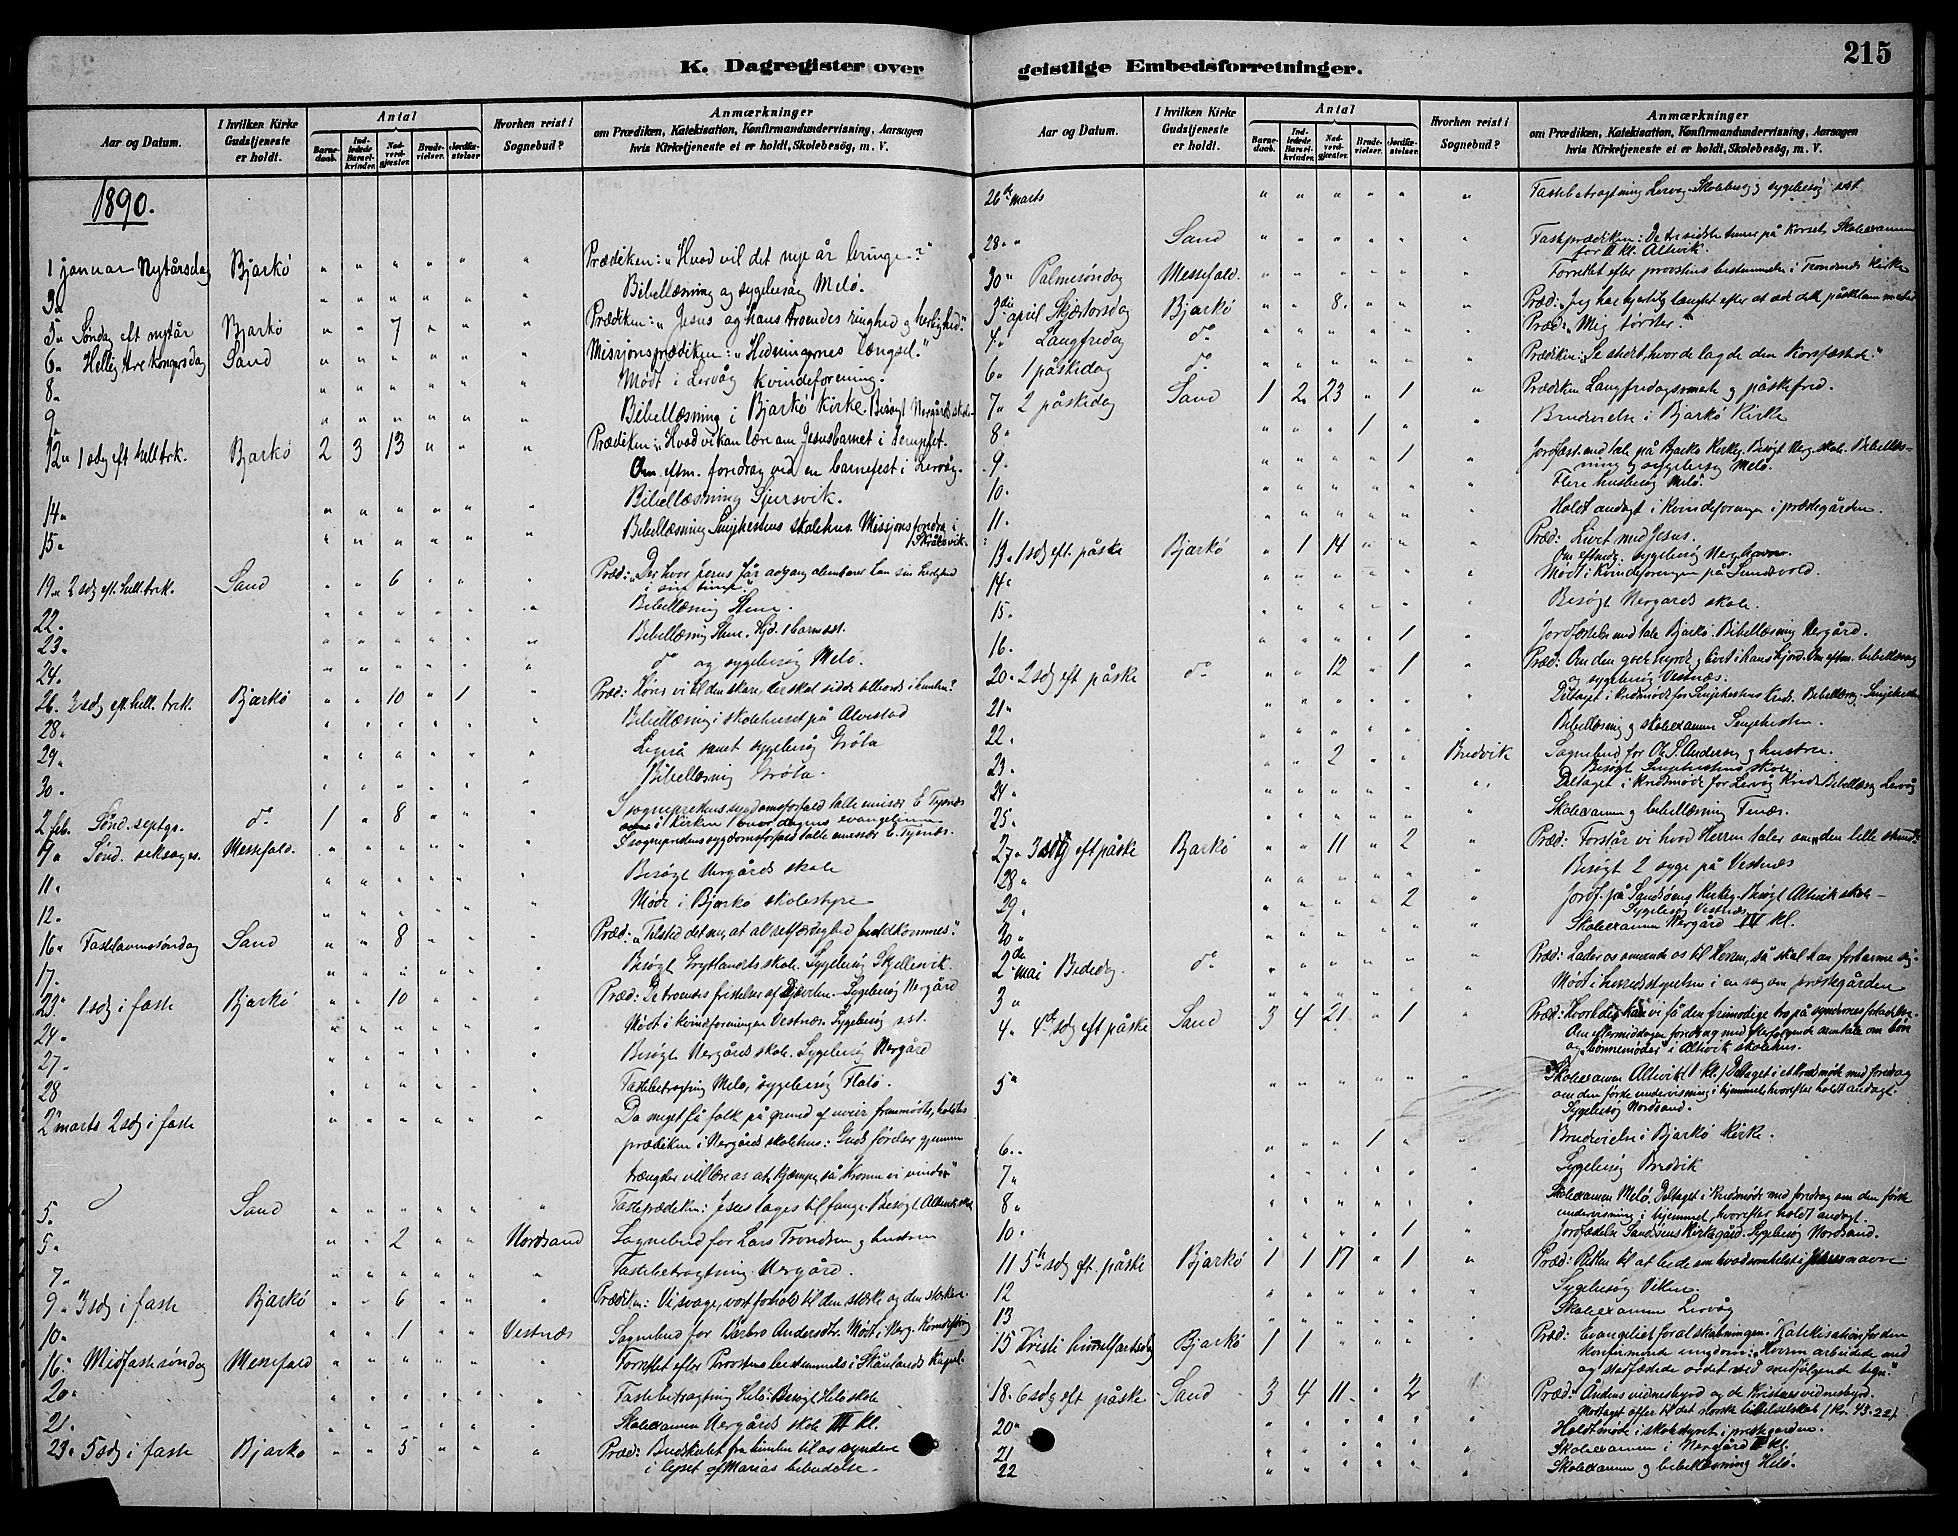 K. Dagregister over
geistlige Embedsforretninger.
215
Aar og Datum.
I hvilken Kirke Gudstjeneste er holdt.
Antal
Barnedaab.
Indledede Barselkvinder.
Nadverdgjæster.
Brudevielser.
Jordfæstelser.
Hvorhen reist i Sognebud?
Anmærkninger
om Prædiken, Katekisation, Konfirmandundervisning, Aarsagen
hvis Kirketjeneste ei er holdt, Skolebesög, m. V.
1890.
1 januar Nytårsdag Bjarkö " " " " " " Prædiken: "Hvad vil det nye år bringe?"
3 " " " " " " Bibellæsning og sygebesøg Melø.
5 " Søndag eft nytår Bjarkö " " 7 " " " Prædiken: "Jesus og hans troendes ringhed og herlighed."
6 " Hellig tre kongersdag Sand " " " " " " Missjonsprædiken: "Hedningernes længsel."
8 " " " " " " " Mødt i Lervåg kvindeforening.
9 " " " " " " Bibellæsning i Bjarkö Kirke. Besøgt Nergårds skole
12 " 1 sdg eft hell. trk. Bjarkö 2 3 13 " " " Prædiken: "Hvad vi kan lære om Jesusbarnet i templet.
Om eftm. foredrag ved en barnefest i Lervåg.
14 " " " " " " " Bibellæsning
15 " " " " " " Bibellæsning Senjehestens skolehus. Missjonsforedrag i
19 " 2 sdg eft. hell. trk. Sand " " 6 " " " Præd:
22 " " " " " " " Bibellæsning
23 " " " " " " " Bibellæsning
24 " " " " " " " do og sygebesøg Melø.
26 " 3 sdg eft hell. trk. Bjarkö " " 10 " 1 " Præd: Hører vi til den skare, der skal sidde tilbords i himlen?
28 " " " " " " " Bibellæsning i skolehuset på Alvestad
29 " " " " " " " samt sygebesøg Grøla
30 " " " " " " " Bibellæsning Grøla.
2 feb. Sønd. septgs. do 1 " 8 " " " I sognepræstens sygdomsforfald talte emissær E. Tysnæs
i Kirken over dagens evangelium
9 " Sønd. seksages. Messefald. " " " " " I sognepræstens sygdomsforfald talte emissær E. Tysnæs.
11 " " " " " " " Besøgt Nergårds skole
12 " " " " " " " Møde i Bjarkö skolestyre
16 " Fastelavnssøndag Sand " " 8 " " " Præd: "Tilsted det nu, at al retfærdighed fuldkommes".
17 " " " " " " " Besøgt Grytlandts skole. Sygebesøg Skjellesvik.
23 " 1 sdg i faste Bjarkö " " 10 " " " Præd: De troendes fristelser af Djævelen. Sygebesøg Nergård
24 " " " " " " " Mødt i kvindeforeningen Vestnæs. Sygebesøg sst.
27 " " " " " " " Besøgt Nergårds skole. Sygebesøg Nergård
28 " " " " " " Fastebetragtning Melø, sygebesøg Flatø.
2 marts 2 sdg i faste " " " " " " Da meget få folk på grund af uveir fremmødte, holdtes
prædiken i Nergårds skolehus: Guds førelser gjennem
trængsler vil lære os at kjæmpe så Kronen vi vinder"
5 " Sand " " " " " " Fasteprædiken: Jesus tages til fange. Besøgt Altevik skole
5 " " " 2 " " Nordsand Sognebud for Lars Trondsen og hustru
7 " " " " " " " Fastebetragtning Nergård.
9 " 3 sdg i faste Bjarkö " " 6 " " " Prædiken: Vi svage, vort forhold til den stærke og den stærkere.
10 " " " 1 " " Vestnæs Sognebud for Barbro Andersdtr. Mødt i Nerg. Kvindeforening
16 " Midfastesøndag Messefald " " " " " " Forrettet efter Provstens bestemmelse i Skånlands Kapel.
20 " " " " " " " Fastebetragtning Helø. Besøgt Helø skole
21 " " " " " " " Skolexamen Nergårds skole III kl.
23 " 5 sdg i faste Bjarkö " " 5 " " " Præd: Budskabet fra himlen til os syndere
i lyset af Marias bebudelse.
Aar og Datum.
I hvilken Kirke Gudstjeneste er holdt.
Antal
Barnedaab.
Indledede Barselkvinder.
Nadverdgjæster.
Brudevielser.
Jordfæstelser.
Hvorhen reist i Sognebud?
Anmærkninger
om Prædiken, Katekisation, Konfirmandundervisning, Aarsagen
hvis Kirketjeneste ei er holdt, Skolebesög, m. V.
26de marts " " " " " " Fastebetragtning Lervåg. Skolebesøg og sygebesøg sst.
28 " " Sand " " " " " " Fastprædiken: De tre sidste timer på Korset. Skolexamen
for II kl. Altevik.
30 " Palmesøndag Messefald. " " " " " " Forrettet efter provstens bestemmelse i Trondenes Kirke
3die april Skjærtorsdag Bjarkö " " 8. " " " Præd: "Jeg har hjertelig længtet efter at æde dette påskelam med eder
4 " Langfredag do " " " " " " Præd: "Mig tørster."
6 " 1 påskedag do " " " " " " Prædiken: Se stedet, hvor de lagde den Korsfæstede."
7 " 2 påskedag Sand 1 2 23 " 1 " Prædiken Langfredagsmørke og påskefred.
8 " " " " 1 " " Brudevielse i Bjarkö Kirke
9 " " " " " 1 " Jordfæst. med tale på Bjarkö Kirkeg. Besøgt Nerg. skole. Bibellæs-
ning og sygebesøg Melø.
10 " " " " " " " Flere husbesøg Melø.
11 " " " " " " " Holdt andagt i Kvindeforeningen i præstegården.
13 " 1 sdg eft. påske Bjarkö " 1 14 " " " Præd: Livet med Jesus.
Om eftmidg. sygebesøg Nerghavn.
14 " " " " " " " Mødt i Kvindeforeningen på Sundsvold.
15 " " " " " " " Besøgt Nergårds skole.
16 " " " " " 1 " Jordfæstelse med tale Bjarkö. Bibellæsning Nergård.
20 " 2 sdg eft påske do " " 12 " 1 " Præd: Om den gode hyrde og livet i hans hjord. Om eftm. bibellæsning
og sygebesøg Vestnæs.
21 " " " " " " " Deltaget i Kredsmøde for Senjehestens Kreds. Bibellæsng. Senjehesten
22 " " " " " " " Bibellæsning og skolexamen Senjehesten.
23 " " " 2 " " Bredvik Sognebud for Ole P. Andersen og hustru.
Besøgt Senjehestens skole
24 " " " " " " " Deltaget i Kredsmøde for Lervåg Kreds. Bibellæsng Lervåg
25 " " " " " " " Skolexamen og bibellæsning Fenæs.
27 " 3 sdg eft påske Bjarkö " " 11 " 2 " Præd: Forstår vi hvad Herren taler om "den lille stund"?
28 " " " " " " " Besøgt 2 syge på Vestnæs
29 " " " " " 2 " Jordf. på Sandsøens Kirkeg. Besøgt Altevik skole-
Sygebesøg Vestnæs
30 " " " " " " " Skolexamen Nergård IV kl.
2de mai Bededag. do " " " " " " Præd: Lader os omvende os til Herren, så skal han forbarme sig.
3 " " " " " " " Mødt i herredsstyrelsen i en sag om præstegården
4 " 4de sdg eft påske Sand 3 4 21 " 1 " Præd: Hvorledes kan vi få den frimodige tro på syndernes forladelse.
Om eftermiddagen foredrag med efterfølgende samtale om bøn
og "bønnemøder" i Altevik skolehus.
5 " " " " " " " Skolexamen Altevik 1 kl. Deltaget i et kredsmøde med foredrag
om den første undervisning i hjemmet, hvorefter holdt andagt.
Sygebesøg Nordsand.
6 " " " " 1 " " Brudevielse i Bjarkö Kirke.
7 " " " " " " " Sygebesøg Bredvik
8 " " " " " " " Skolexamen Melø. Deltaget i Kredsmøde med foredrag om den første
undervisning i hjemmet, hvorefter holdt andagt.
10 " " " " " 1 " Jordfæstelse Sandsøens Kirkegård. Sygebesøg Nordsand.
11 5te sdg eft. påske Bjarkö 1 1 17 " 1 " Præd: Retten til at bede om hvadsomhelst i Jesu navn
12 " " " " " " Sygebesøg Viken.
13 " " " " " " Skolexamen Lervåg
15 Kristi himmelfartsdg Bjarkö 1 1 " " " " Præd: Evangeliet for al skabningen. Katekisation for den
konfirmerede ungdom: "Herren arbeidede med
og stadfæstede ordet ved medfølgende tegn."
18 " 6 sdg eft påske Sand 3 4 11 " 2 " Præd: Åndens vidnesbyrd og de Kristnes vidnesbyrd.
Modtaget offer til det norske bibelselskab (Kr. 43.22).
20 " " " " " " " Holdt møde i skolestyret i prestegården.
21 " " " " " " Skolexamen i Nergård II kl.
22 " " " " " " Skolexamen og bibellæsning Helø.